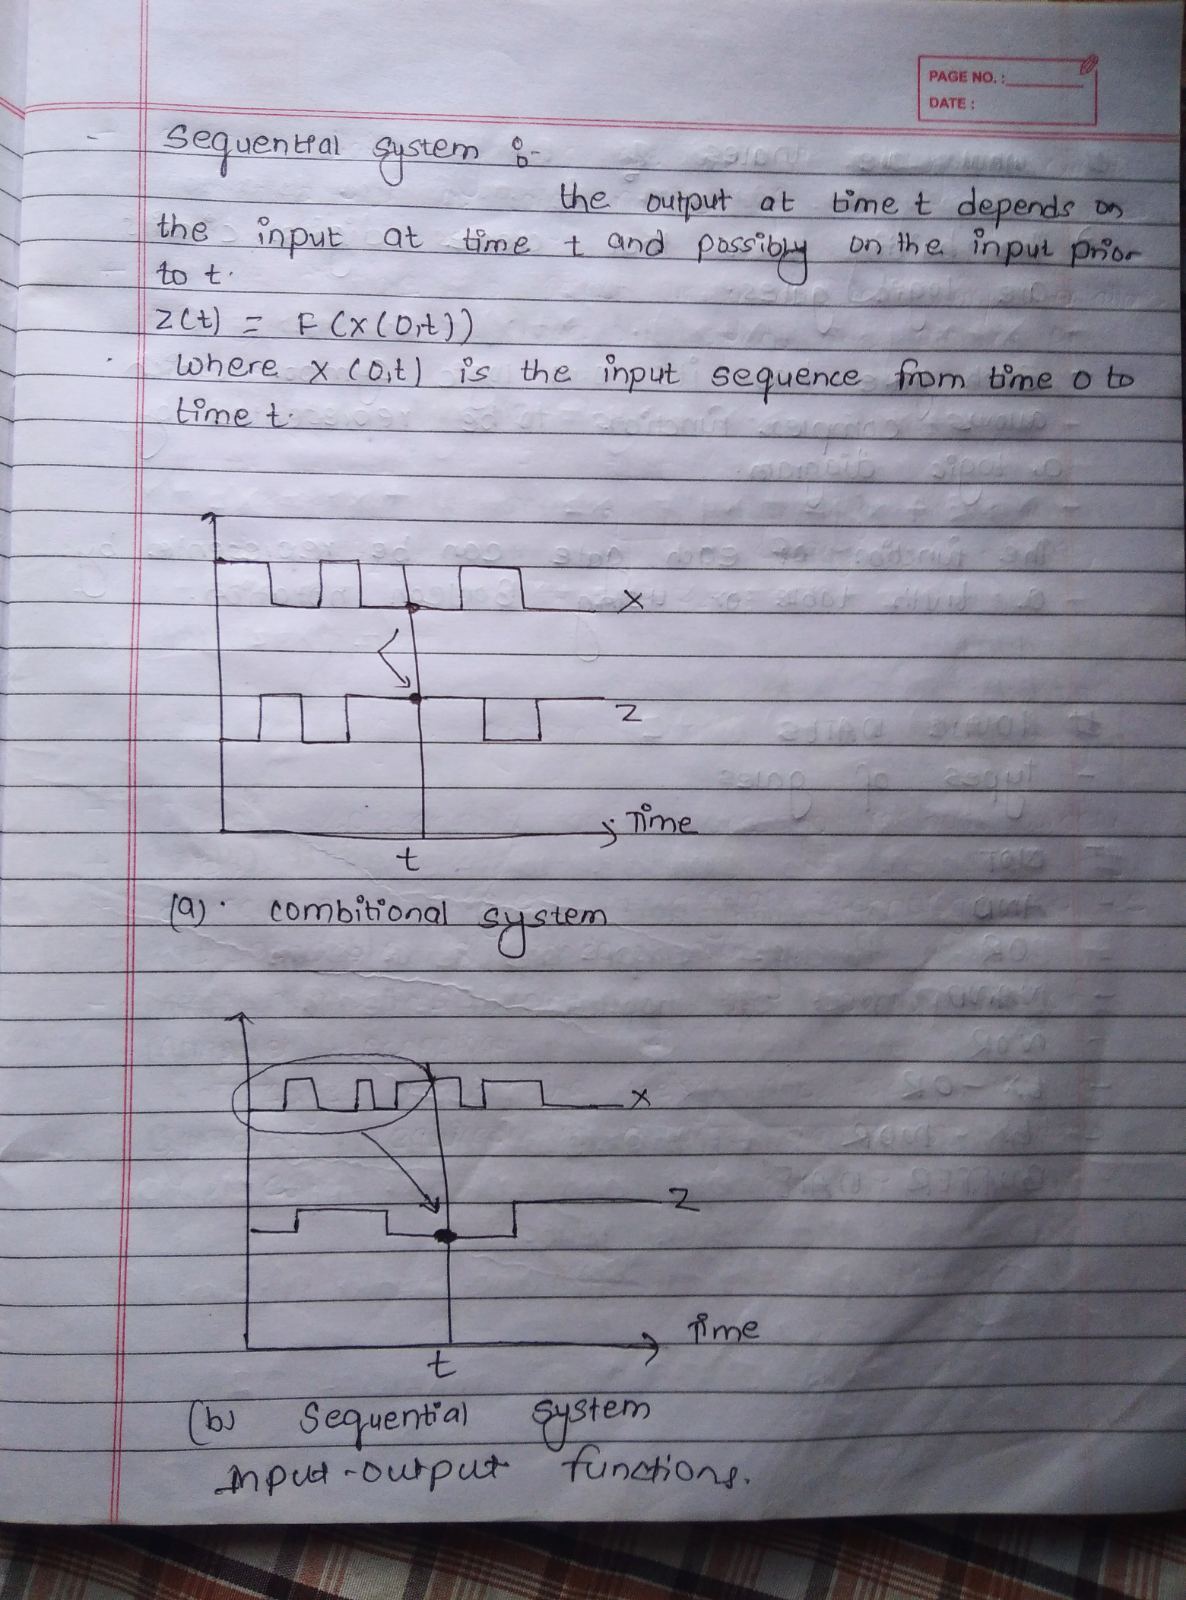 PAGE NO. :
DATE :
- Sequential system :-
the output at time t depends on
the input at time t and possibly on the input prior
to t.
Z(t) = F(x(0,t))
where x(0,t) is the input sequence from time 0 to
time t.
X
Z
Time
t
(a). combitional system
X
Z
Time
t
(b) Sequential system
Input-output functions.